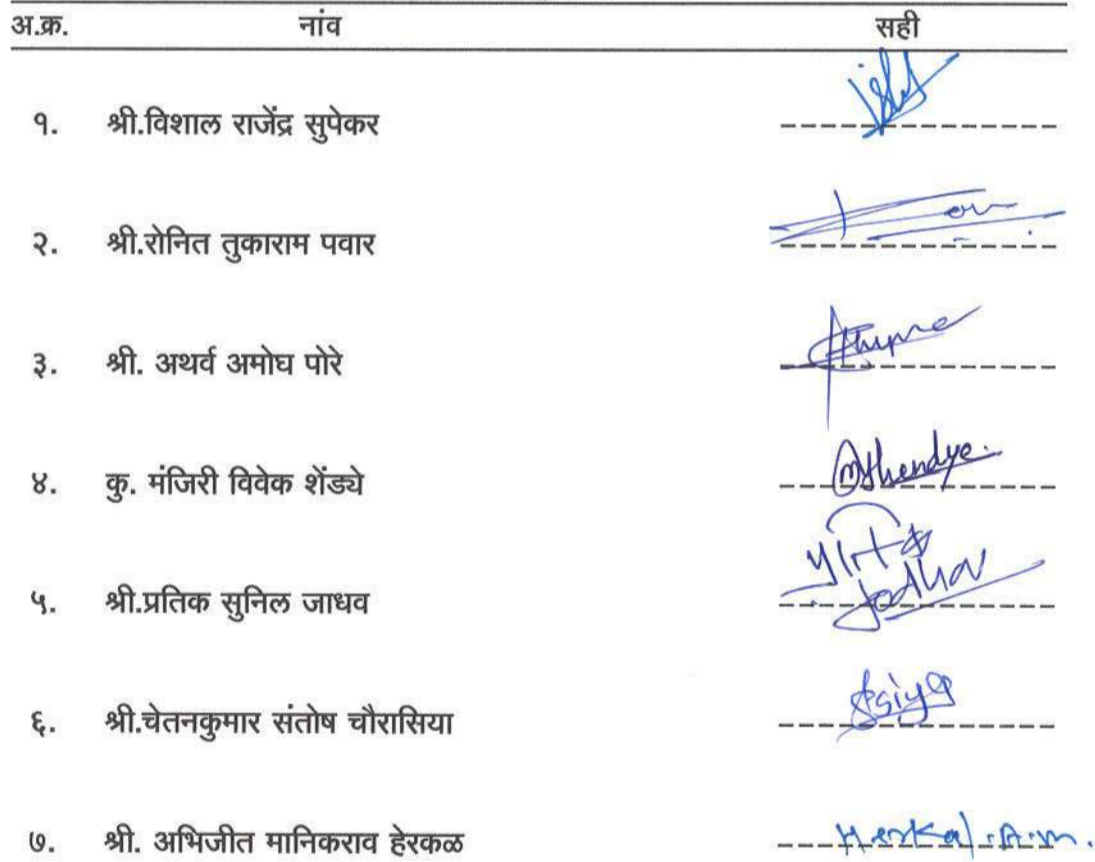 अ.क्र. नांव सही
१. श्री.विशाल राजेंद्र सुपेकर
२. श्री.रोनित तुकाराम पवार
३. श्री. अथर्व अमोघ पोरे
४. कु. मंजिरी विवेक शेंड्ये Mshendye.
५. श्री.प्रतिक सुनिल जाधव
६. श्री.चेतनकुमार संतोष चौरासिया
७. श्री. अभिजीत मानिकराव हेरकळ Herkal.A.M.